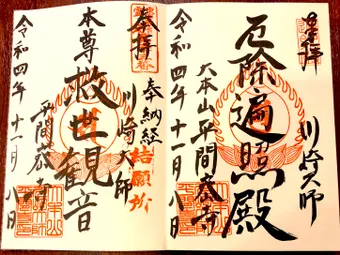 奉拝
川崎大師
厄除遍照殿
大本山平間寺
令和四年十一月八日
奉拝
奉納経
結願所
川崎大師
本尊
救世観音
平間寺
令和四年十一月八日